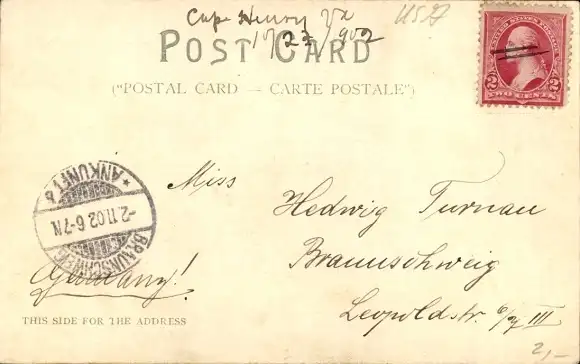 Cape Henry Va
USA
10/23/1902
POST CARD
("POSTAL CARD — CARTE POSTALE")
UNITED STATES POSTAGE
2 2
TWO CENTS
Miss
Hedwig Turnau
Braunschweig
Leopoldstr. 6/7 III
Germany!
* ANKUNFT b
-2.11.02.6-7N
BRAUNSCHWEIG
THIS SIDE FOR THE ADDRESS
2,-